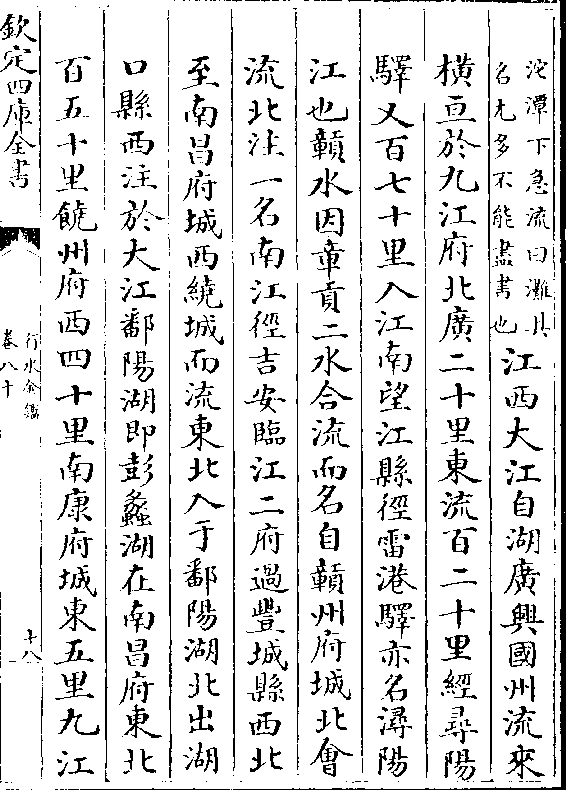 沱潭下急流曰灘其
名尤多不能盡書也
江西大江自湖廣興國州流來
橫亘於九江府北廣二十里東流百二十里經尋陽
驛又百七十里入江南望江縣徑雷港驛亦名潯陽
江也贛水因章貢二水合流而名自贛州府城北會
流北注一名南江徑吉安臨江二府過豐城縣西北
至南昌府城西繞城而流東北入于鄱陽湖北出湖
口縣西注於大江鄱陽湖即彭蠡湖在南昌府東北
百五十里饒州府西四十里南康府城東五里九江
欽定四庫全書
行水金鑑
卷八十
十八